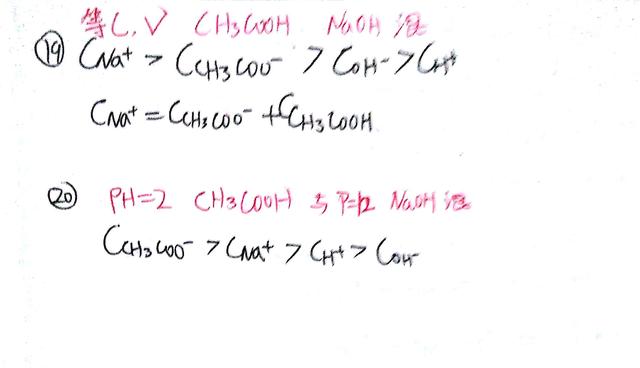 等C、V CH3COOH NaOH 混
⑲ CNa+ > CCH3COO- > COH- > CH+
CNa+ = CCH3COO- + CCH3COOH
⑳ PH=2 CH3COOH 与 P=12 NaOH 混
CCH3COO- > CNa+ > CH+ > COH-